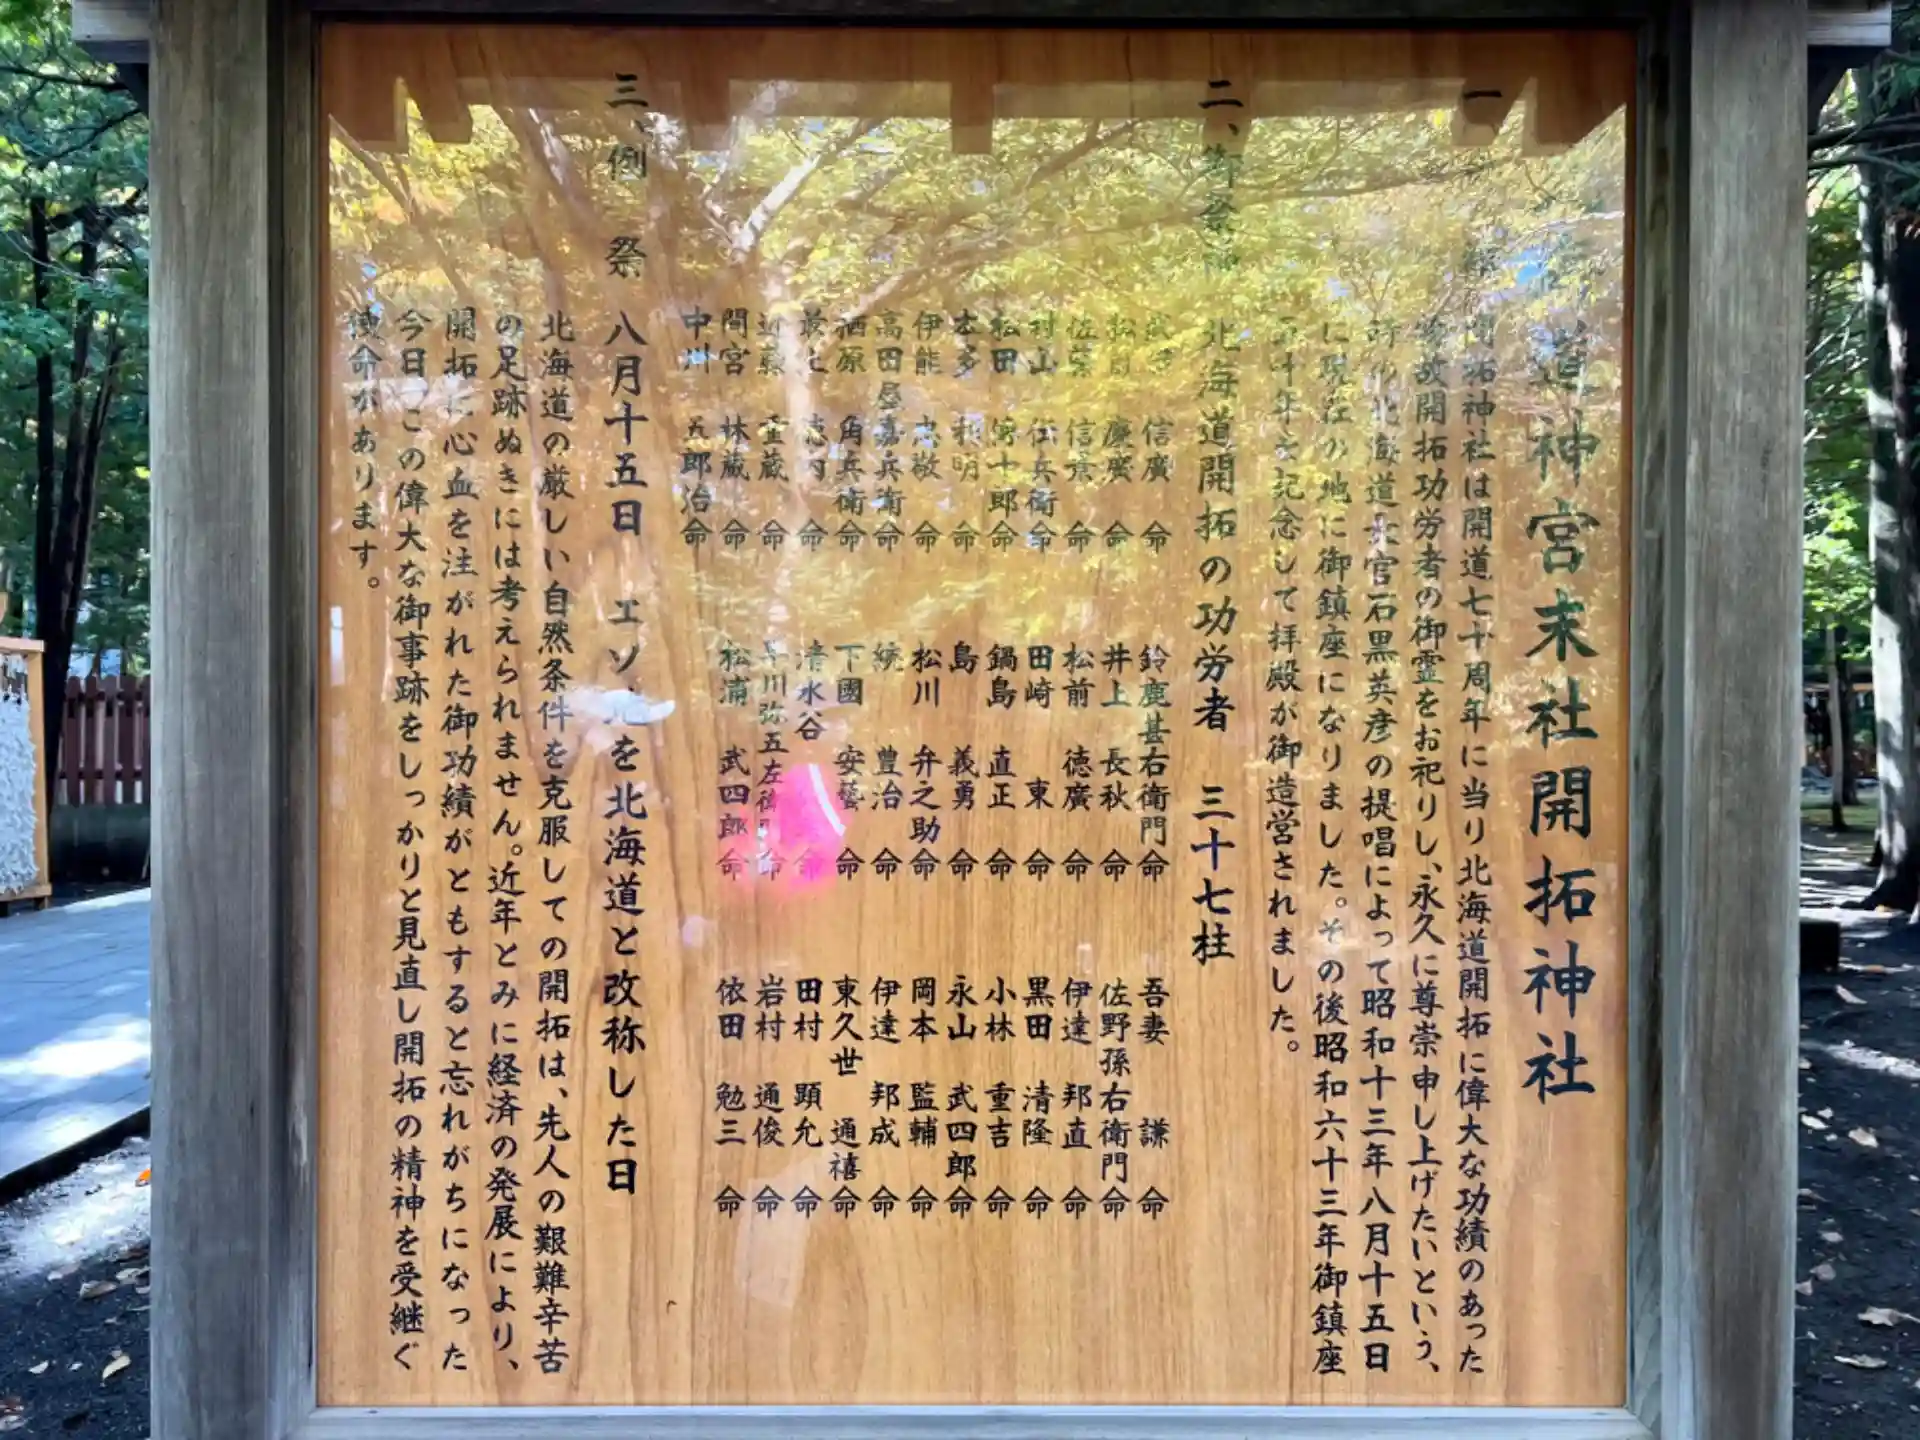 道神宮末社開拓神社
一
開拓神社は開道七十周年に当り北海道開拓に偉大な功績のあった
物故開拓功労者の御霊をお祀りし、永久に尊崇申し上げたいという、
時の北海道長官石黒英彦の提唱によって昭和十三年八月十五日
に現在の地に御鎮座になりました。その後昭和六十三年御鎮座
五十年を記念して拝殿が御造営されました。
二、御祭神
北海道開拓の功労者 三十七柱
信廣命
松前慶廣命
佐藤信景命
村山伝兵衛命
松田傳十郎命
本多利明命
伊能忠敬命
高田屋嘉兵衛命
栖原角兵衛命
最上徳内命
近藤重蔵命
間宮林蔵命
中川五郎治命
鈴鹿甚右衛門命
井上長秋命
松前徳廣命
田崎東命
鍋島直正命
島義勇命
松川弁之助命
続豊治命
下國安藝命
清水谷命
早川弥五左衛門命
松浦武四郎命
吾妻謙命
佐野孫右衛門命
伊達邦直命
黒田清隆命
小林重吉命
永山武四郎命
岡本監輔命
伊達邦成命
東久世通禧命
田村顕允命
岩村通俊命
依田勉三命
三、例祭 八月十五日 エゾ地を北海道と改称した日
北海道の厳しい自然条件を克服しての開拓は、先人の艱難辛苦
の足跡ぬきには考えられません。近年とみに経済の発展により、
開拓に心血を注がれた御功績がともすると忘れがちになった
今日、この偉大な御事跡をしっかりと見直し開拓の精神を受継ぐ
使命があります。